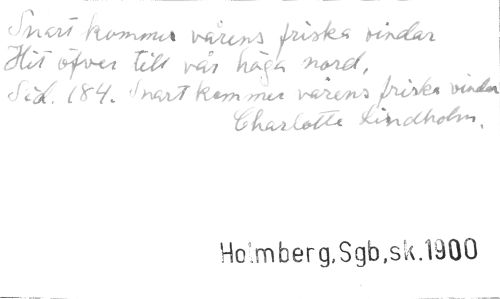 Snart kommer vårens friska vindar
Hit öfver till vår höga nord,
Sid. 184. Snart kommer vårens friska vindar
Charlotte Lindholm.
Holmberg,Sgb,sk.1900